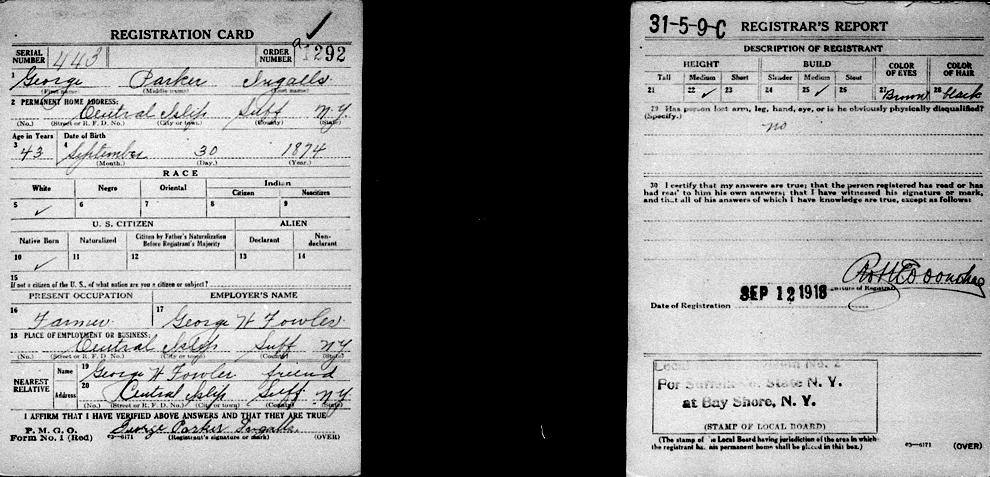 REGISTRATION CARD
SERIAL NUMBER 443 ORDER NUMBER 1292
1 George Parker Ingalls
(First name) (Middle name) (Last name)
2 PERMANENT HOME ADDRESS:
Central Islip Suff N.Y.
(No.) (Street or R. F. D. No.) (City or town) (County) (State)
Age in Years Date of Birth
3 43 4 September 30 1874
(Month.) (Day.) (Year.)
RACE
White Negro Oriental Indian
Citizen Noncitizen
5 ✓ 6 7 8 9
U. S. CITIZEN ALIEN
Native Born Naturalized Citizen by Father's Naturalization Before Registrant's Majority Declarant Non-declarant
10 ✓ 11 12 13 14
15
If not a citizen of the U. S., of what nation are you a citizen or subject?
PRESENT OCCUPATION EMPLOYER'S NAME
16 Farmer 17 George H Fowler
18 PLACE OF EMPLOYMENT OR BUSINESS:
Central Islip Suff NY
(No.) (Street or R. F. D. No.) (City or town) (County) (State)
NEAREST RELATIVE Name 19 George H Fowler friend
Address 20 Central Islip Suff NY
(No.) (Street or R. F. D. No.) (City or town) (County) (State)
I AFFIRM THAT I HAVE VERIFIED ABOVE ANSWERS AND THAT THEY ARE TRUE
P. M. G. O.
Form No. 1 (Red) 03-6171 George Parker Ingalls
(Registrant's signature or mark) (OVER)
31-5-9-C REGISTRAR'S REPORT
DESCRIPTION OF REGISTRANT
HEIGHT BUILD COLOR OF EYES COLOR OF HAIR
Tall Medium Short Slender Medium Stout
21 22 ✓ 23 24 25 ✓ 26 27 Brown 28 black
29 Has person lost arm, leg, hand, eye, or is he obviously physically disqualified?
(Specify.) no
30 I certify that my answers are true; that the person registered has read or has
had read to him his own answers; that I have witnessed his signature or mark,
and that all of his answers of which I have knowledge are true, except as follows:
Date of Registration SEP 12 1918
Local No. 2
For Suffolk Co. State N. Y.
at Bay Shore, N. Y.
(STAMP OF LOCAL BOARD)
(The stamp of Local Board having jurisdiction of the area in which
the registrant has his permanent home shall be placed in this box.) 03-6171 (OVER)